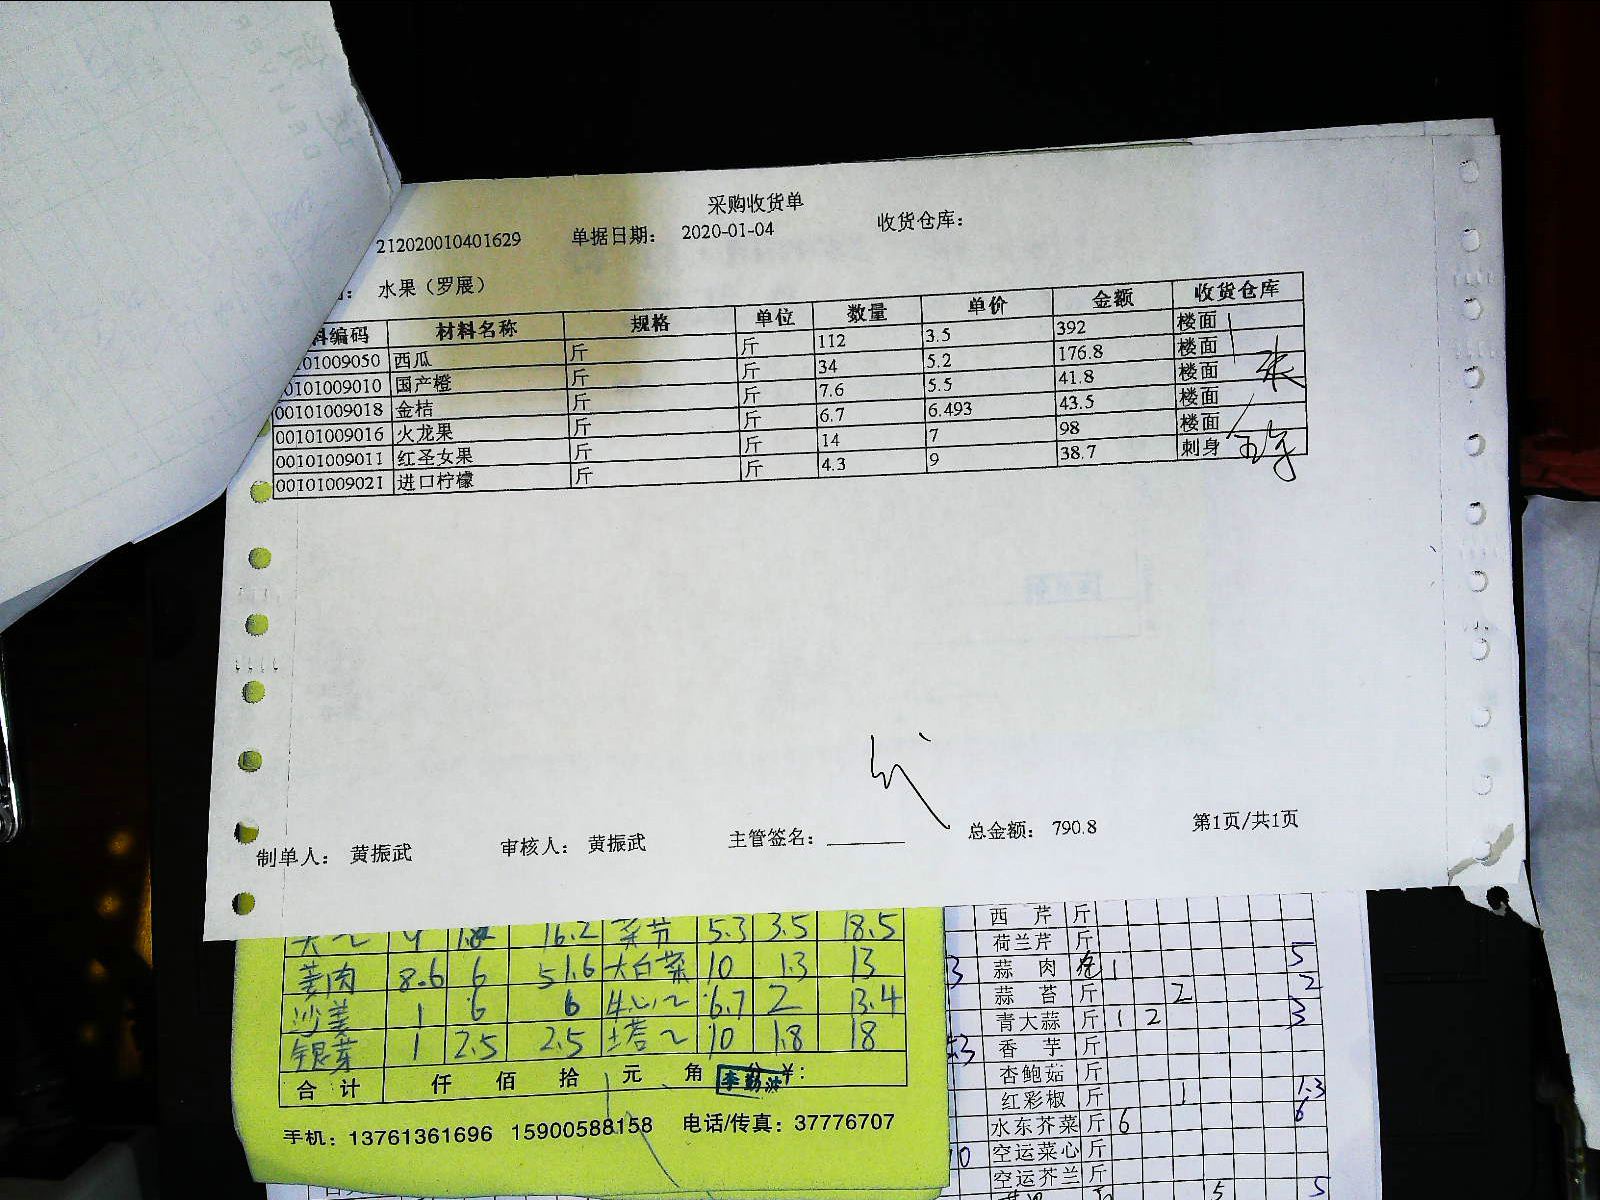 采购收货单
212020010401629 单据日期： 2020-01-04 收货仓库：
： 水果（罗展）
料编码 材料名称 规格 单位 数量 单价 金额 收货仓库
01009050 西瓜 斤 斤 112 3.5 392 楼面
0101009010 国产橙 斤 斤 34 5.2 176.8 楼面
00101009018 金桔 斤 斤 7.6 5.5 41.8 楼面
00101009016 火龙果 斤 斤 6.7 6.493 43.5 楼面
00101009011 红圣女果 斤 斤 14 7 98 楼面
00101009021 进口柠檬 斤 斤 4.3 9 38.7 刺身
制单人： 黄振武 审核人： 黄振武 主管签名： 总金额： 790.8 第1页/共1页
16.2 5.3 3.5 18.5
姜肉 8.6 6 51.6 大白菜 10 1.3 13
沙姜 1 6 6 6.7 2 13.4
银芽 1 2.5 2.5 10 1.8 18
合计 仟 佰 拾 元 角 分 ¥：
手机：13761361696 15900588158 电话/传真：37776707
西芹 斤
荷兰芹 斤
蒜肉 1 5
蒜苔 斤 2 2
青大蒜 斤 1 2 3
香芋 斤
杏鲍菇 斤
红彩椒 斤 1 1.3
水东芥菜 斤 6 6
空运菜心 斤
空运芥兰 斤
5 5